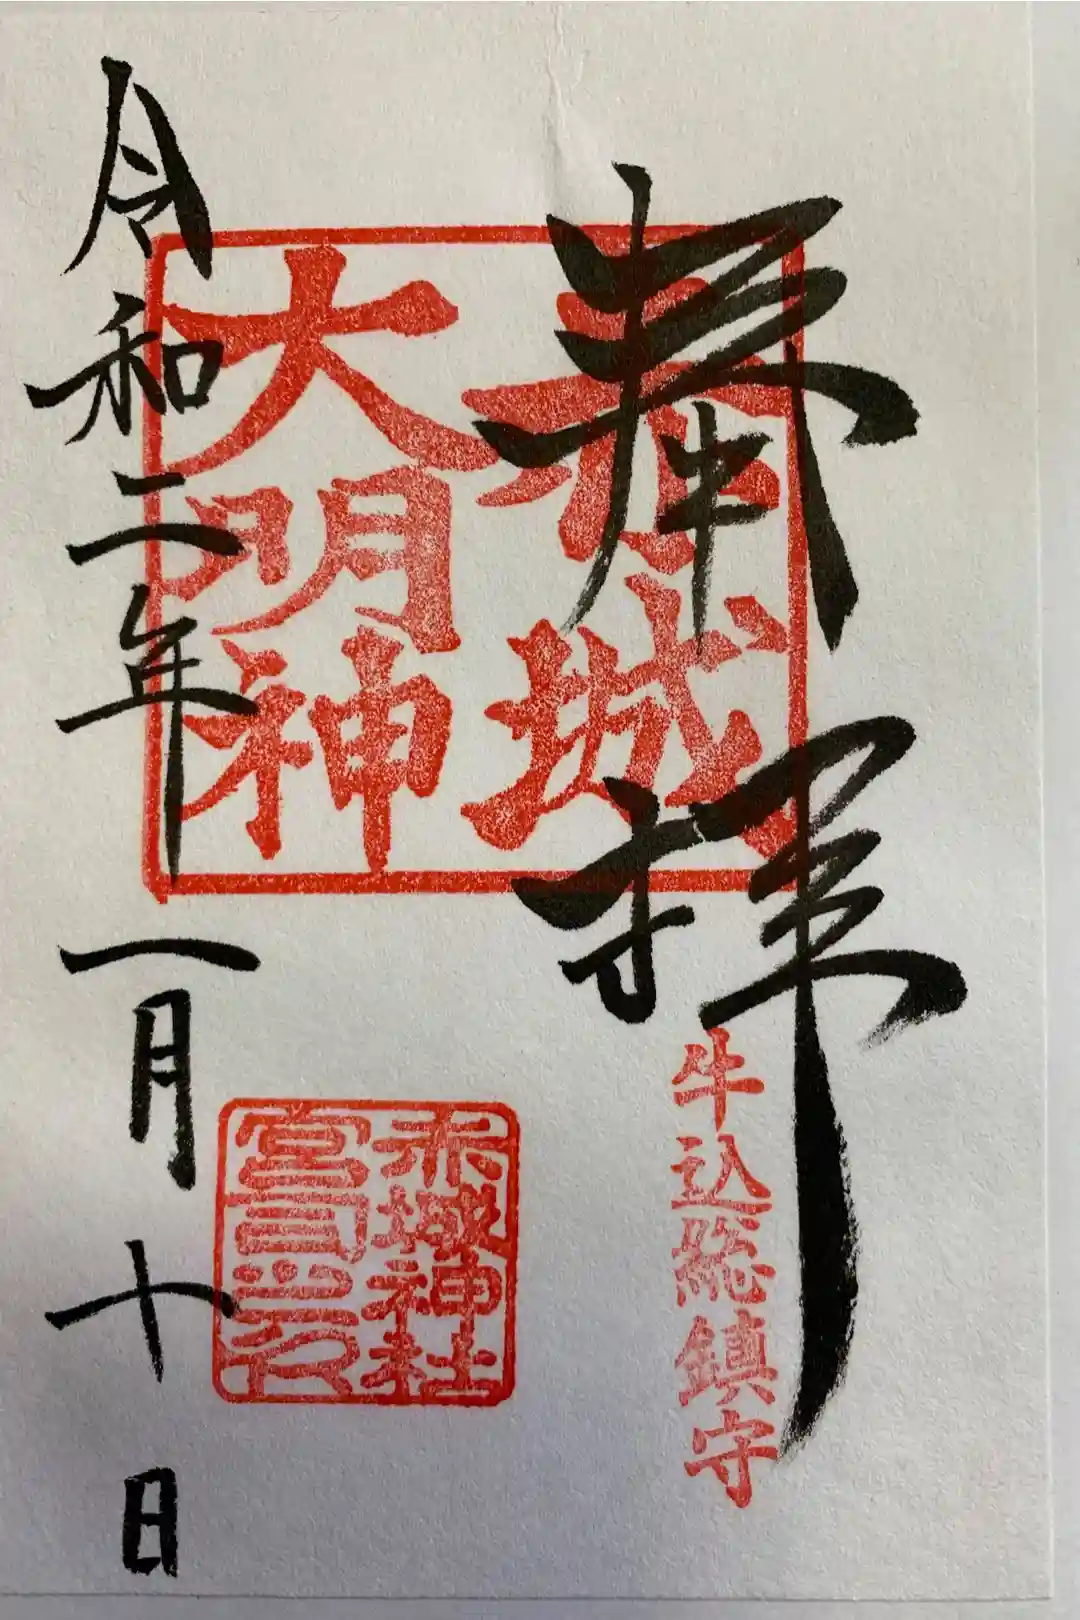 奉拝
牛込総鎮守
赤城
大明神
赤城神社
令和二年一月十日